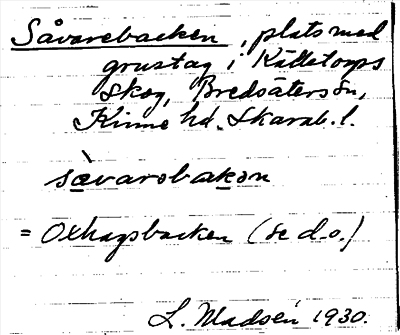 Såvarebacken, plats med
grustag i Källetorps
skog, Bredsäters sn,
Kinne hd. Skarab. l.
sæ̀varobakən
= Oxhagsbacken (se d.o.)
L. Madsén 1930.